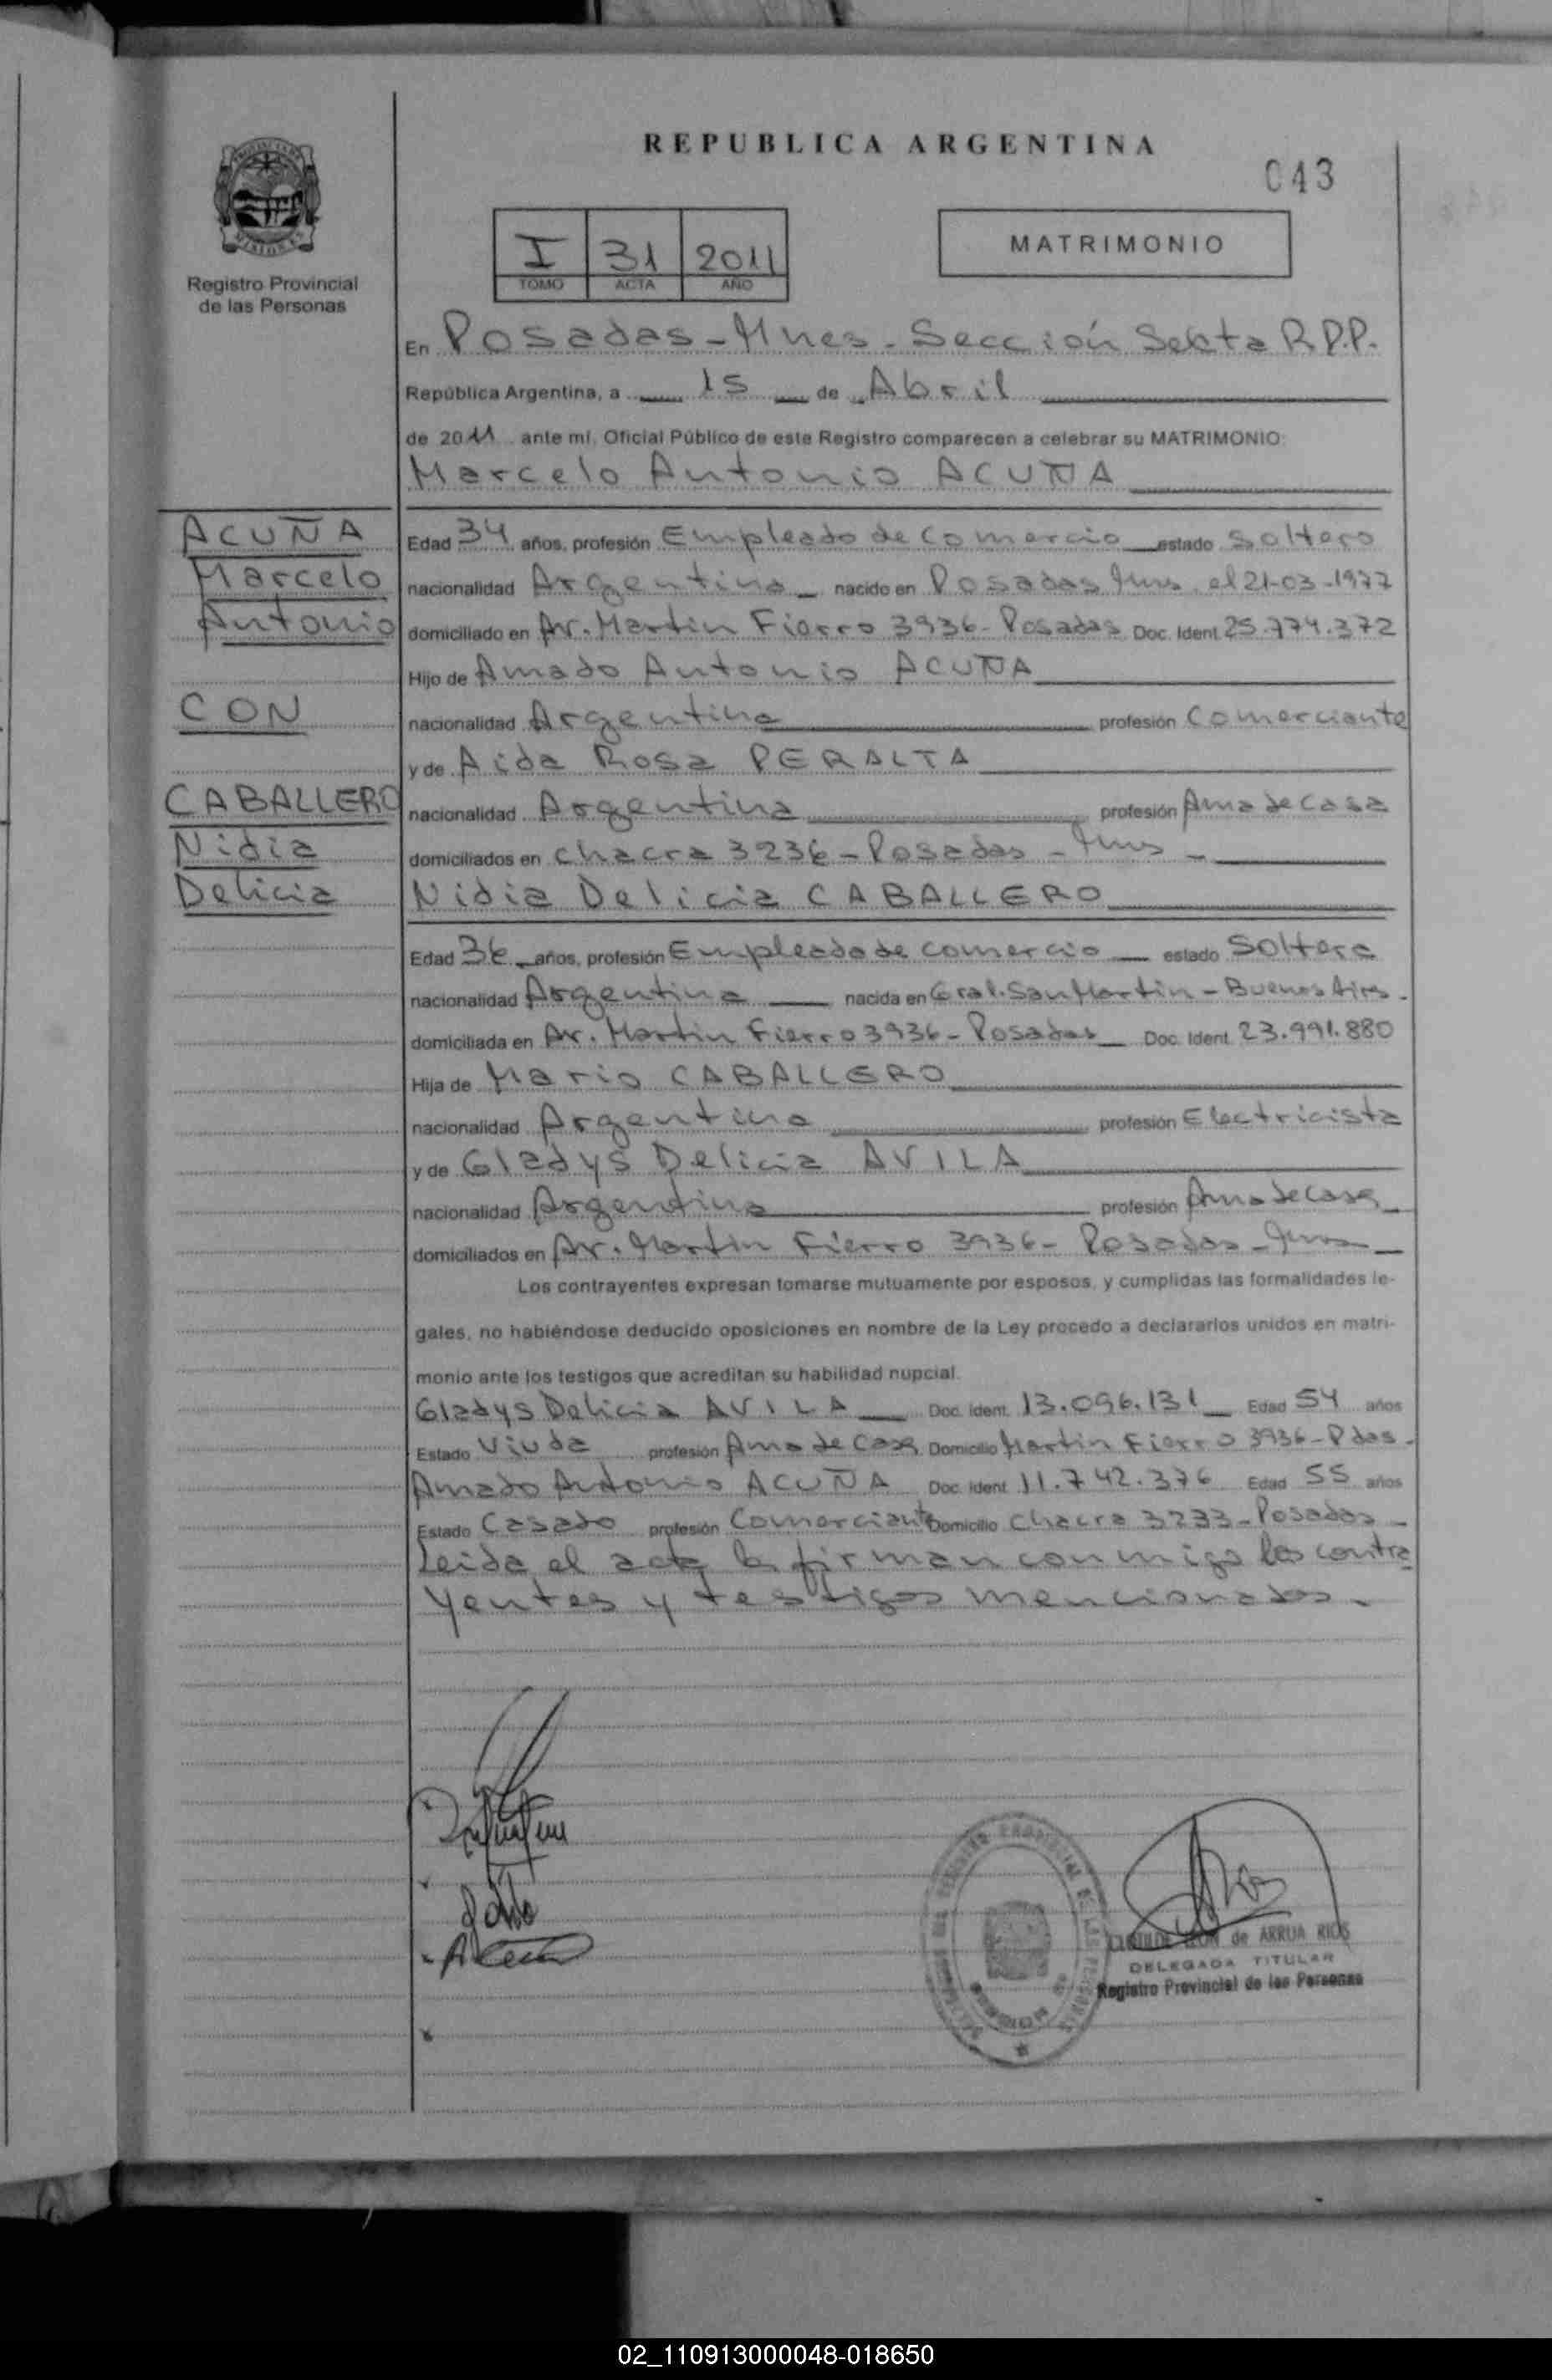 REPUBLICA ARGENTINA
043
I 31 2011
TOMO ACTA AÑO
MATRIMONIO
Registro Provincial
de las Personas
En Posadas - Mnes. Sección Sexta R.P.P.
República Argentina, a 15 de Abril
de 2011 ante mí, Oficial Público de este Registro comparecen a celebrar su MATRIMONIO:
Marcelo Antonio ACUÑA
ACUÑA
Marcelo
Antonio
CON
CABALLERO
Nidia
Delicia
Edad 34 años, profesión Empleado de Comercio estado Soltero
nacionalidad Argentina nacido en Posadas Mnes. el 21-03-1977
domiciliado en Av. Martin Fierro 3936 - Posadas Doc. Ident. 25.774.372
Hijo de Amado Antonio ACUÑA
nacionalidad Argentina profesión Comerciante
y de Aida Rosa PERALTA
nacionalidad Argentina profesión Ama de Casa
domiciliados en Chacra 3236 - Posadas - Mnes -
Nidia Delicia CABALLERO
Edad 36 años, profesión Empleada de comercio estado Soltera
nacionalidad Argentina nacida en Gral. San Martin - Buenos Aires.
domiciliada en Av. Martin Fierro 3936 - Posadas Doc. Ident. 23.991.880
Hija de Mario CABALLERO
nacionalidad Argentina profesión Electricista
y de Gladys Delicia AVILA
nacionalidad Argentina profesión Ama de Casa
domiciliados en Av. Martin Fierro 3936 - Posadas - Mnes
Los contrayentes expresan tomarse mutuamente por esposos, y cumplidas las formalidades le-
gales, no habiéndose deducido oposiciones en nombre de la Ley procedo a declararlos unidos en matri-
monio ante los testigos que acreditan su habilidad nupcial.
Gladys Delicia AVILA Doc. Ident. 13.096.131 Edad 54 años
Estado Viuda profesión Ama de Casa Domicilio Martin Fierro 3936 - Pdas.
Amado Antonio ACUÑA Doc. Ident. 11.742.376 Edad 55 años
Estado Casado profesión Comerciante Domicilio Chacra 3233 - Posadas -
Leida el acta la firman conmigo los contra
yentes y testigos mencionados.
de ARRUA RIOS
DELEGADA TITULAR
Registro Provincial de las Personas
02_110913000048-018650